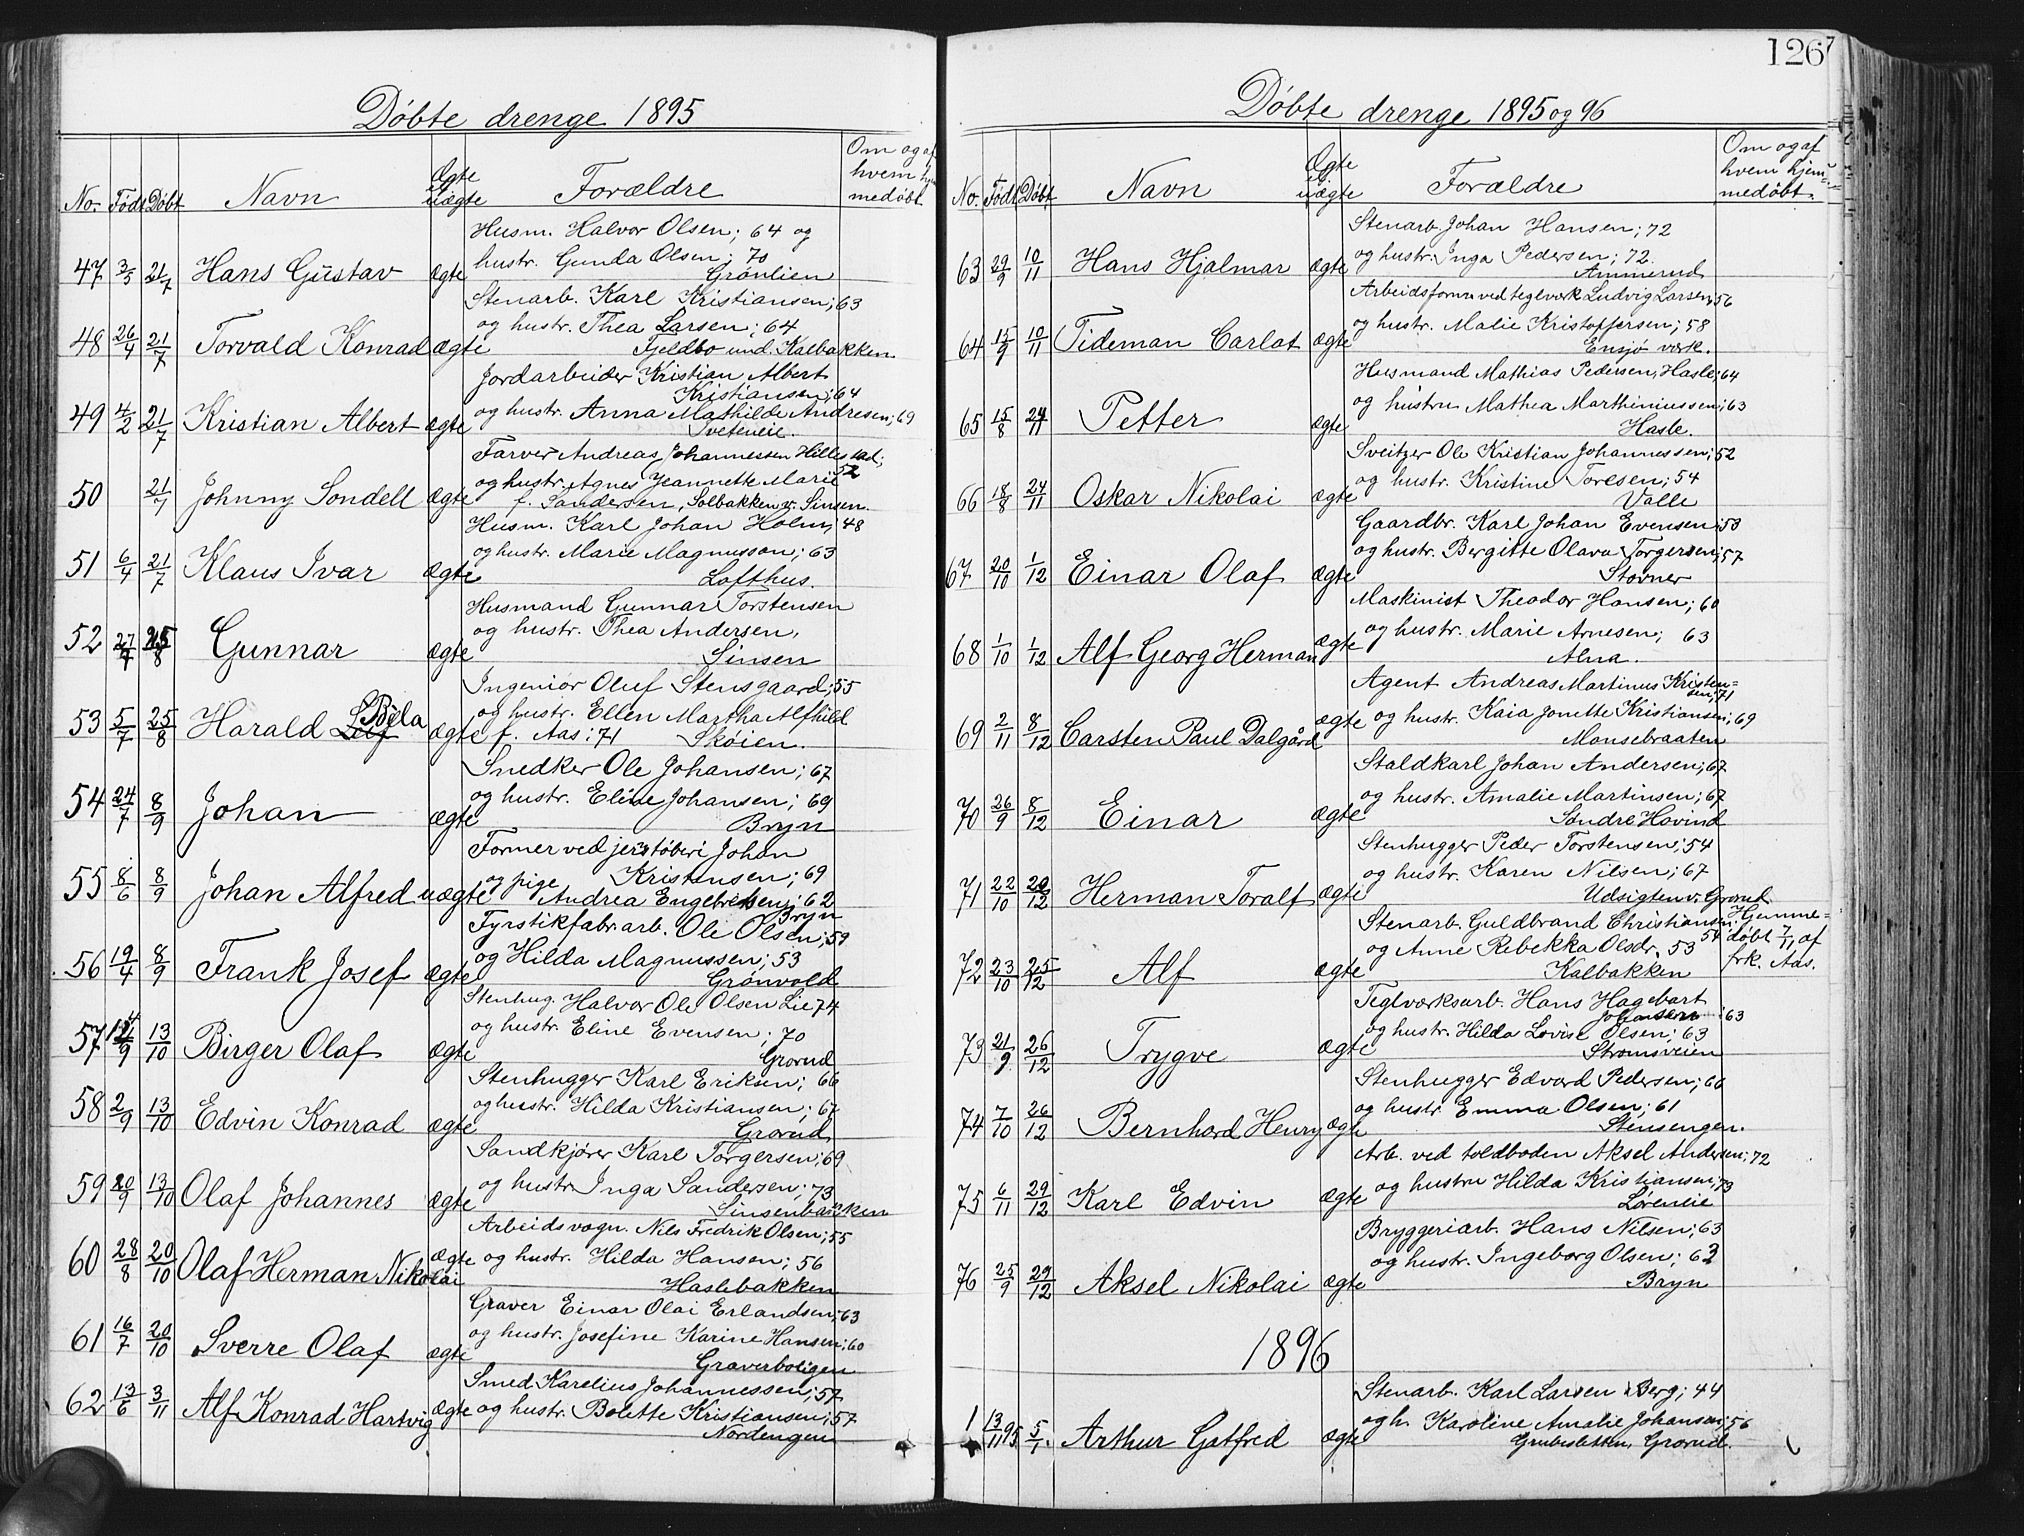 Döbte drenge 1895
No. Födt Döbt Navn Ægte el. uægte Forældre Om og af hvem hjem medöbt
Husm. Halvor Olsen; 64 og
hustr. Gunda Olsen; 70
47 3/5 21/7 Hans Gustav ægte Grönlien
Stenarb. Karl Kristiansen; 63
og hustr. Thea Larsen; 64
48 26/4 21/7 Torvald Konrad ægte Fjeldbo und. Kalbakken
Jordarbeider Kristian Albert
Kristiansen; 64
og hustr. Anna Mathilde Andresen; 69
49 4/2 21/7 Kristian Albert ægte Tveteneie.
Farver Andreas Johannessen Hillestad; 52
og hustr. Agnes Jeannette Marie
50 21/7 Johnny Sondell ægte f. Sandersen, Solbakken v. Sinsen.
Husm. Karl Johan Holm; 48
og hustr. Marie Magnusson; 63
51 6/4 21/7 Klaus Ivar ægte Lofthus.
Husmand Gunnar Torstensen
og hustr. Thea Andersen,
52 27/7 25/8 Gunnar ægte Sinsen
Ingeniör Oluf Stensgaard; 55
og hustr. Ellen Martha Alfhild
53 5/7 25/8 Harald Bela ægte f. Aas; 71 Sköien.
Snedker Ole Johansen; 67
og hustr. Eline Johansen; 69
54 24/7 8/9 Johan ægte Bryn
Former ved jernstöberi Johan
Kristensen; 69
og pige Andrea Engebretsen; 62
55 8/6 8/9 Johan Alfred uægte Bryn
Fyrstikfabr.arb. Ole Olsen; 59
og Hilda Magnussen; 53
56 19/4 8/9 Frank Josef ægte Grönvold
Stenhug. Halvor Ole Olsen Lie 74
og hustr. Eline Evensen; 70
57 /9 13/10 Birger Olaf ægte Grorud
Stenhugger Karl Eriksen; 66
og hustr. Hilda Kristiansen; 67
58 2/9 13/10 Edvin Konrad ægte Grorud
Sandkjörer Karl Torgersen; 69
og hustr. Inga Sandersen; 73
59 20/9 13/10 Olaf Johannes ægte Sinsenbakken
Arbeidsvogn. Nils Fredrik Olsen; 55
og hustr. Hilda Hansen; 56
60 28/8 20/10 Olaf Herman Nikolai ægte Haslebakken
Graver Einar Olai Erlandsen; 63
og hustr. Josefine Karine Hansen; 60
61 16/7 20/10 Sverre Olaf ægte Graverboligen
Smed Karelius Johannessen; 57
62 13/6 3/11 Alf Konrad Hartvig ægte og hustr. Bolette Kristiansen; 57
Nordengen
126
Döbte drenge 1895 og 96
No. Födt Döbt Navn Ægte el. uægte Forældre Om og af hvem hjemmedöbt.
Stenarb. Johan Hansen; 72
og hustr. Inga Pedersen; 72.
63 29/9 10/11 Hans Hjalmar ægte Ammerud
Arbeidsform. ved teglverk Ludvig Larsen; 56
og hustr. Malie Kristoffersen; 58
64 15/9 10/11 Tideman Carlot ægte Ensjö værk.
Husmand Mathias Pedersen, Hasle; 64
og hustru Mathea Marthiniussen; 63
65 15/8 24/11 Petter ægte Hasle.
Sveitzer Ole Kristian Johannessen; 52
og hustr. Kristine Toresen; 54
66 18/8 24/11 Oskar Nikolai ægte Valle
Gaardbr. Karl Johan Evensen; 53
og hustr. Bergitte Olava Torgersen; 57
67 20/10 1/12 Einar Olaf ægte Stovner
Maskinist Theodor Hansen; 60
og hustr. Marie Arnesen; 63
68 1/10 1/12 Alf Georg Herman ægte Alna.
Agent Andreas Martinus Kristensen; 71
og hustr. Kaia Jonette Kristiansen; 69
69 2/11 8/12 Carsten Paul Dalgård ægte Monsebraaten
Staldkarl Johan Andersen; 67
og hustr. Amalie Martinsen; 67
70 26/9 8/12 Einar ægte Söndre Hovind
Stenhugger Peder Torstensen; 54
og hustr. Karen Nilsen; 67
71 22/10 /12 Herman Toralf ægte Udsigten v. Grorud
Stenarb. Guldbrand Christiansen 54 Hjemmedöbt 7/11 af frk. Aas.
og Anne Rebekka Olsdr. 53
72 23/10 25/12 Alf ægte Kalbakken
Teglværksarb. Hans Hagebart
Johansen; 63
og hustr. Hilda Lovise Olsen; 63
73 21/9 26/12 Trygve ægte Strömsveien
Stenhugger Edvard Pedersen; 66
og hustr. Emma Olsen; 61
74 7/10 26/12 Bernhard Henry ægte Stensengen.
Arb. ved toldboden Aksel Andersen; 72
og hustru Hilda Kristiansen; 73
75 6/11 29/12 Karl Edvin ægte Löreneie
Bryggeriarb. Hans Nilsen; 63
og hustr. Ingeborg Olsen; 63
76 25/9 29/12 Aksel Nikolai ægte Bryn
1896
Stenarb. Karl Larsen Berg; 44
og h. Karoline Amalie Johansen; 56
1 13/11 95 5/1. Arthur Gotfred ægte Grubesletten, Grorud.